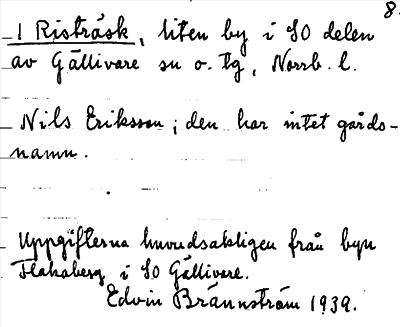 8.
1 Risträsk, liten by i SO delen
av Gällivare sn o. tg, Norrb. l.
Nils Eriksson; den har intet gårds-
namn.
Uppgifterna huvudsakligen från byn
Flakaberg i SO Gällivare.
Edvin Brännström 1939.